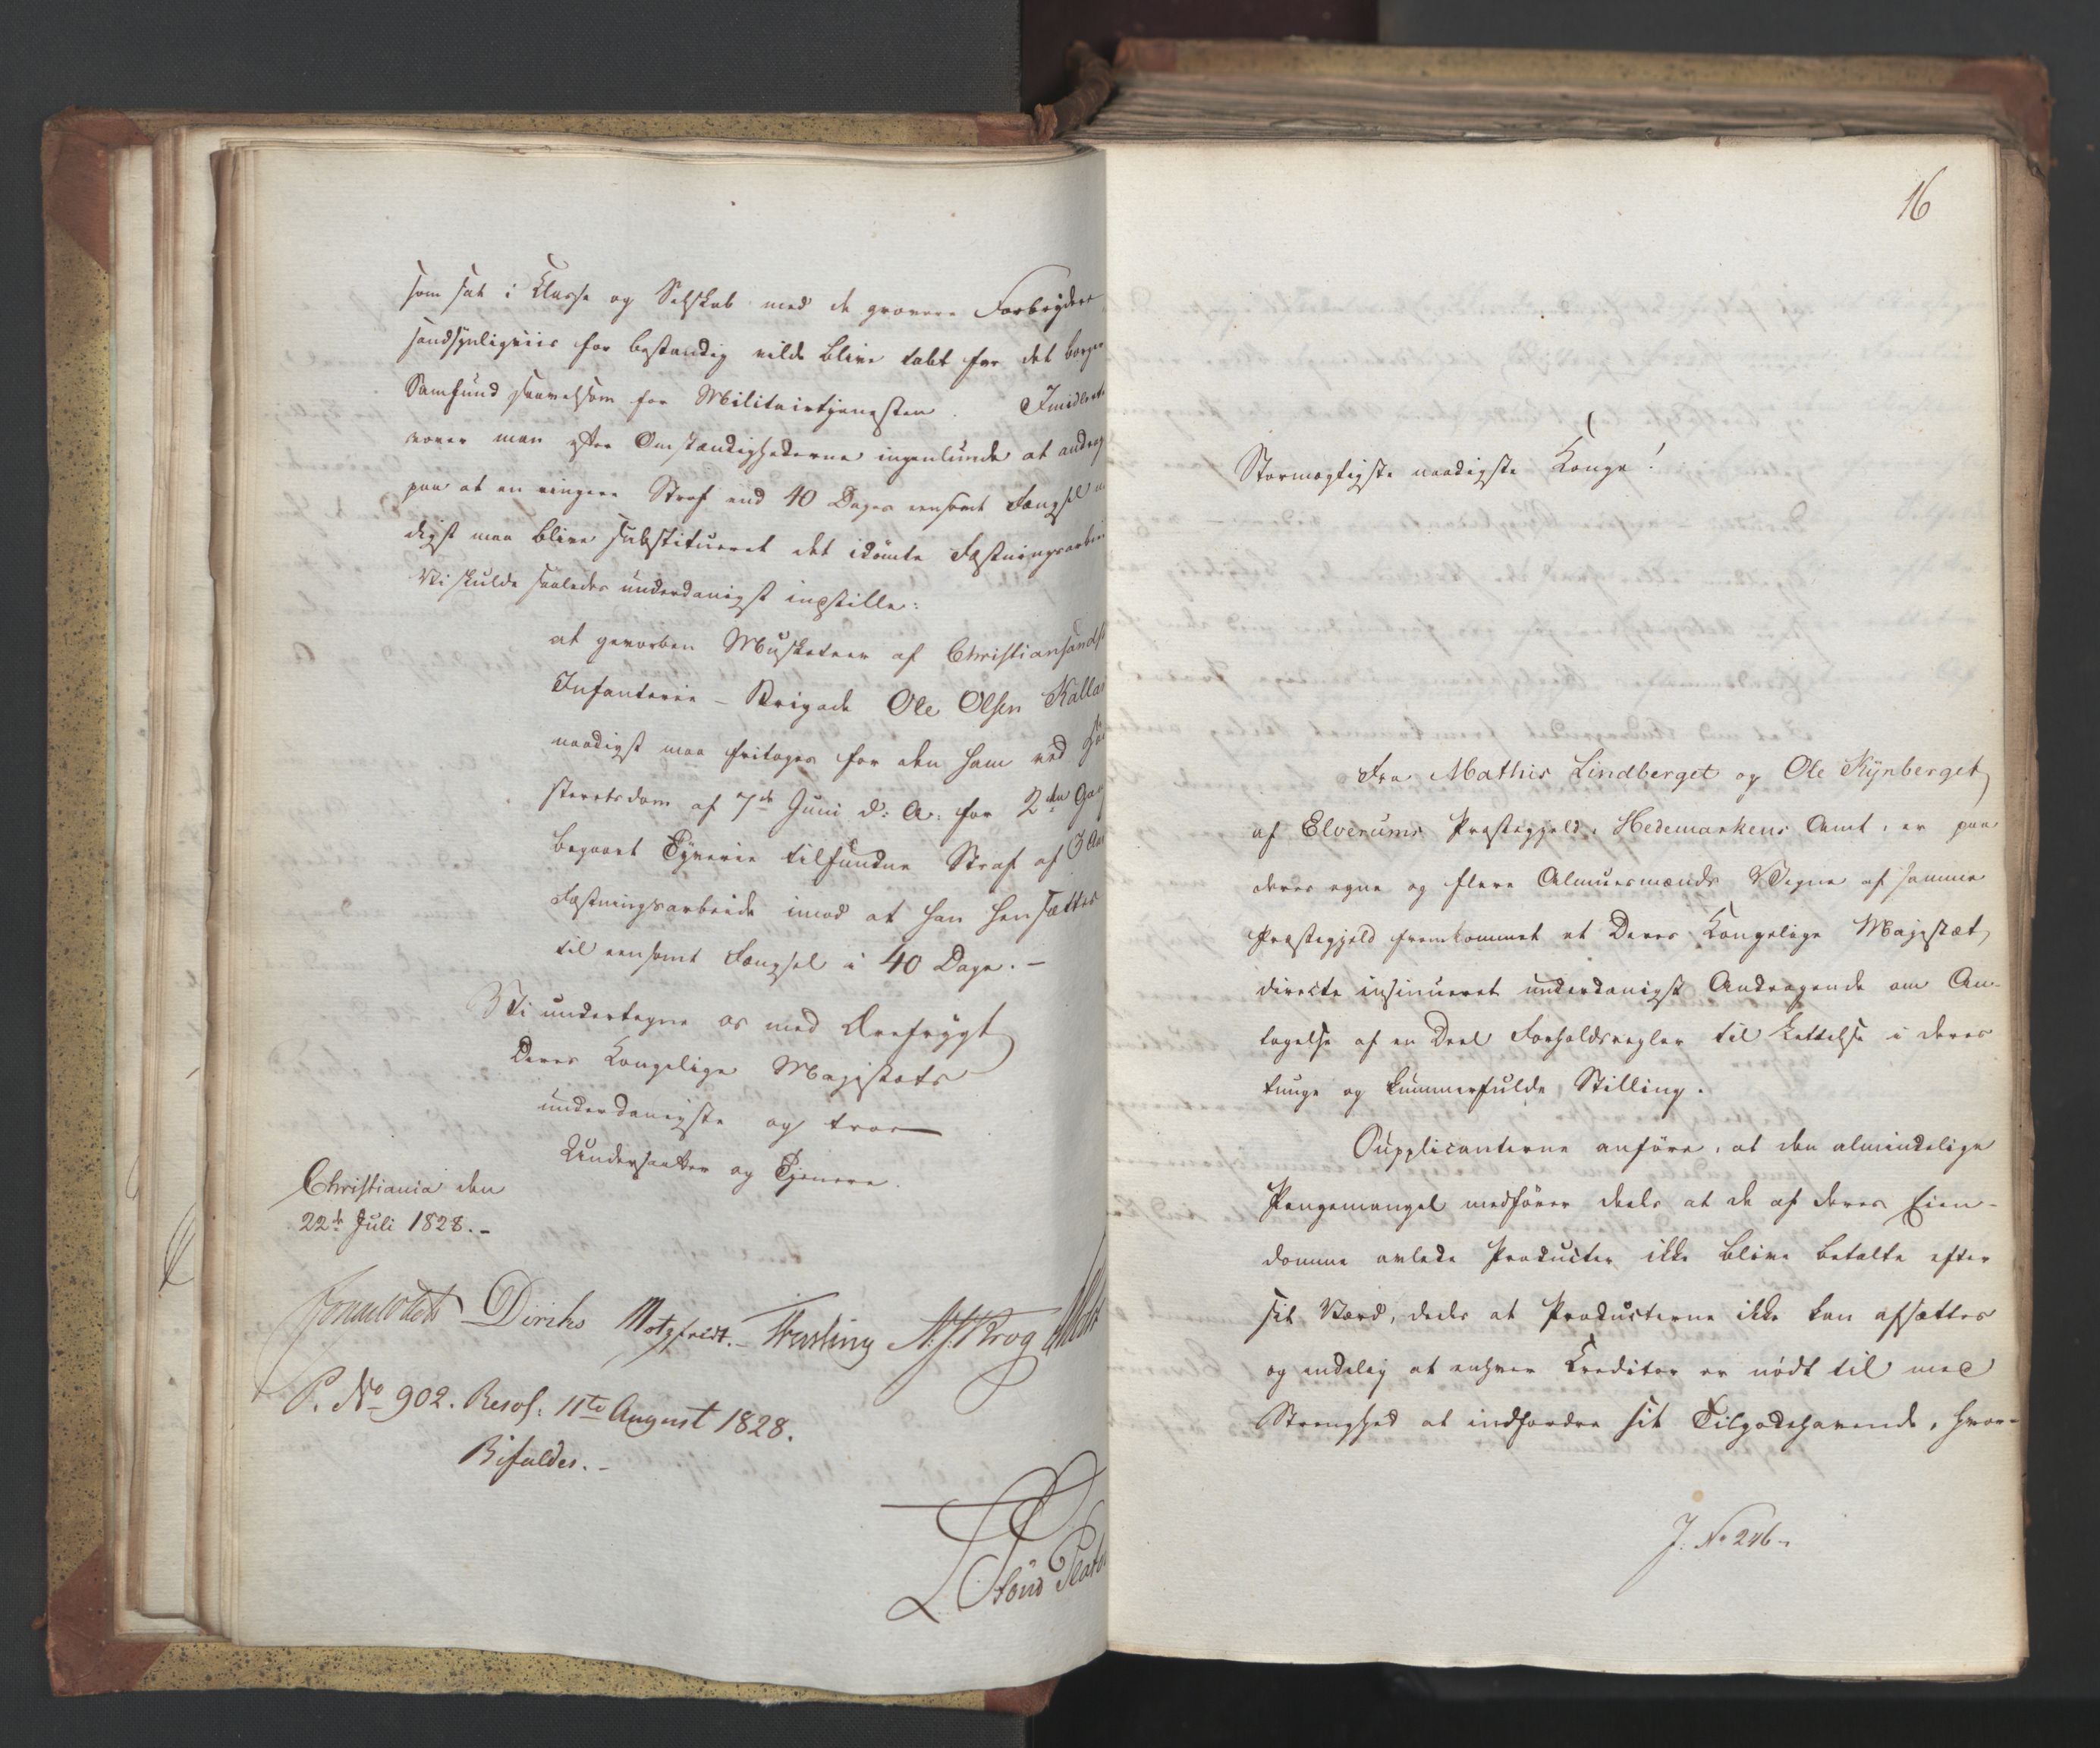 som sat i Klasse og Selskab med de grovere Forbrydere
sandsynligviis for bestandig vilde blive tabt for det borger
Samfund saavelsom for Militairtjenesten. Imidlert
vover man efter Omstændighederne ingenlunde at andrag
paa at en ringere Straf end 40 Dages eensomt Fængsel
digst maa blive substitueret det idömte Fæstningsarbei
Vi skulde saaledes underdanigst indstille:
at gevorben Musketeer af Christiansandsk
Infanterie-Brigade Ole Olsen Kallas
naadigst maa fritages for den ham ved
steretsdom af 7de Juni d: A: for 2den Gang
begaaet Tyverie tilfundne Straf af 3 Aars
Fæstningsarbeide imod at han hensættes
til eensomt Fængsel i 40 Dage. -
Vi undertegne os med Ærefrygt
Deres Kongelige Majestæts
underdanigste og troe
Undersaatter og Tjenere.
Christiania den
22de Juli 1828. -
Diriks Motzfeldt. - Treschow N. J. Krog
P. No 902. Resol: 11te August 1828.
Bifaldes. -
16
Stormægtigste naadigste Konge!
Fra Mathis Lindberget og Ole Kynberget
af Elverums Præstegjeld, Hedemarkens Amt, er paa
deres egne og flere Almuesmænds Vegne af samme
Præstegjeld fremkommet et Deres Kongelige Majestæt
directe insinueret underdanigst Andragende om An-
tagelse af en Deel Forholdsregler til Lettelse i deres
tunge og kummerfulde Stilling.
Supplicanterne anföre, at den almindelige
Pengemangel medförer deels at de af deres Eien-
domme avlede Producter ikke blive betalte efter
sit Værd, deels at Producterne ikke kan afsættes
og endelig at enhver Creditor er nödt til med
Strenghed at indfordre sit Tilgodehavende, hvor-
J. No 246 -